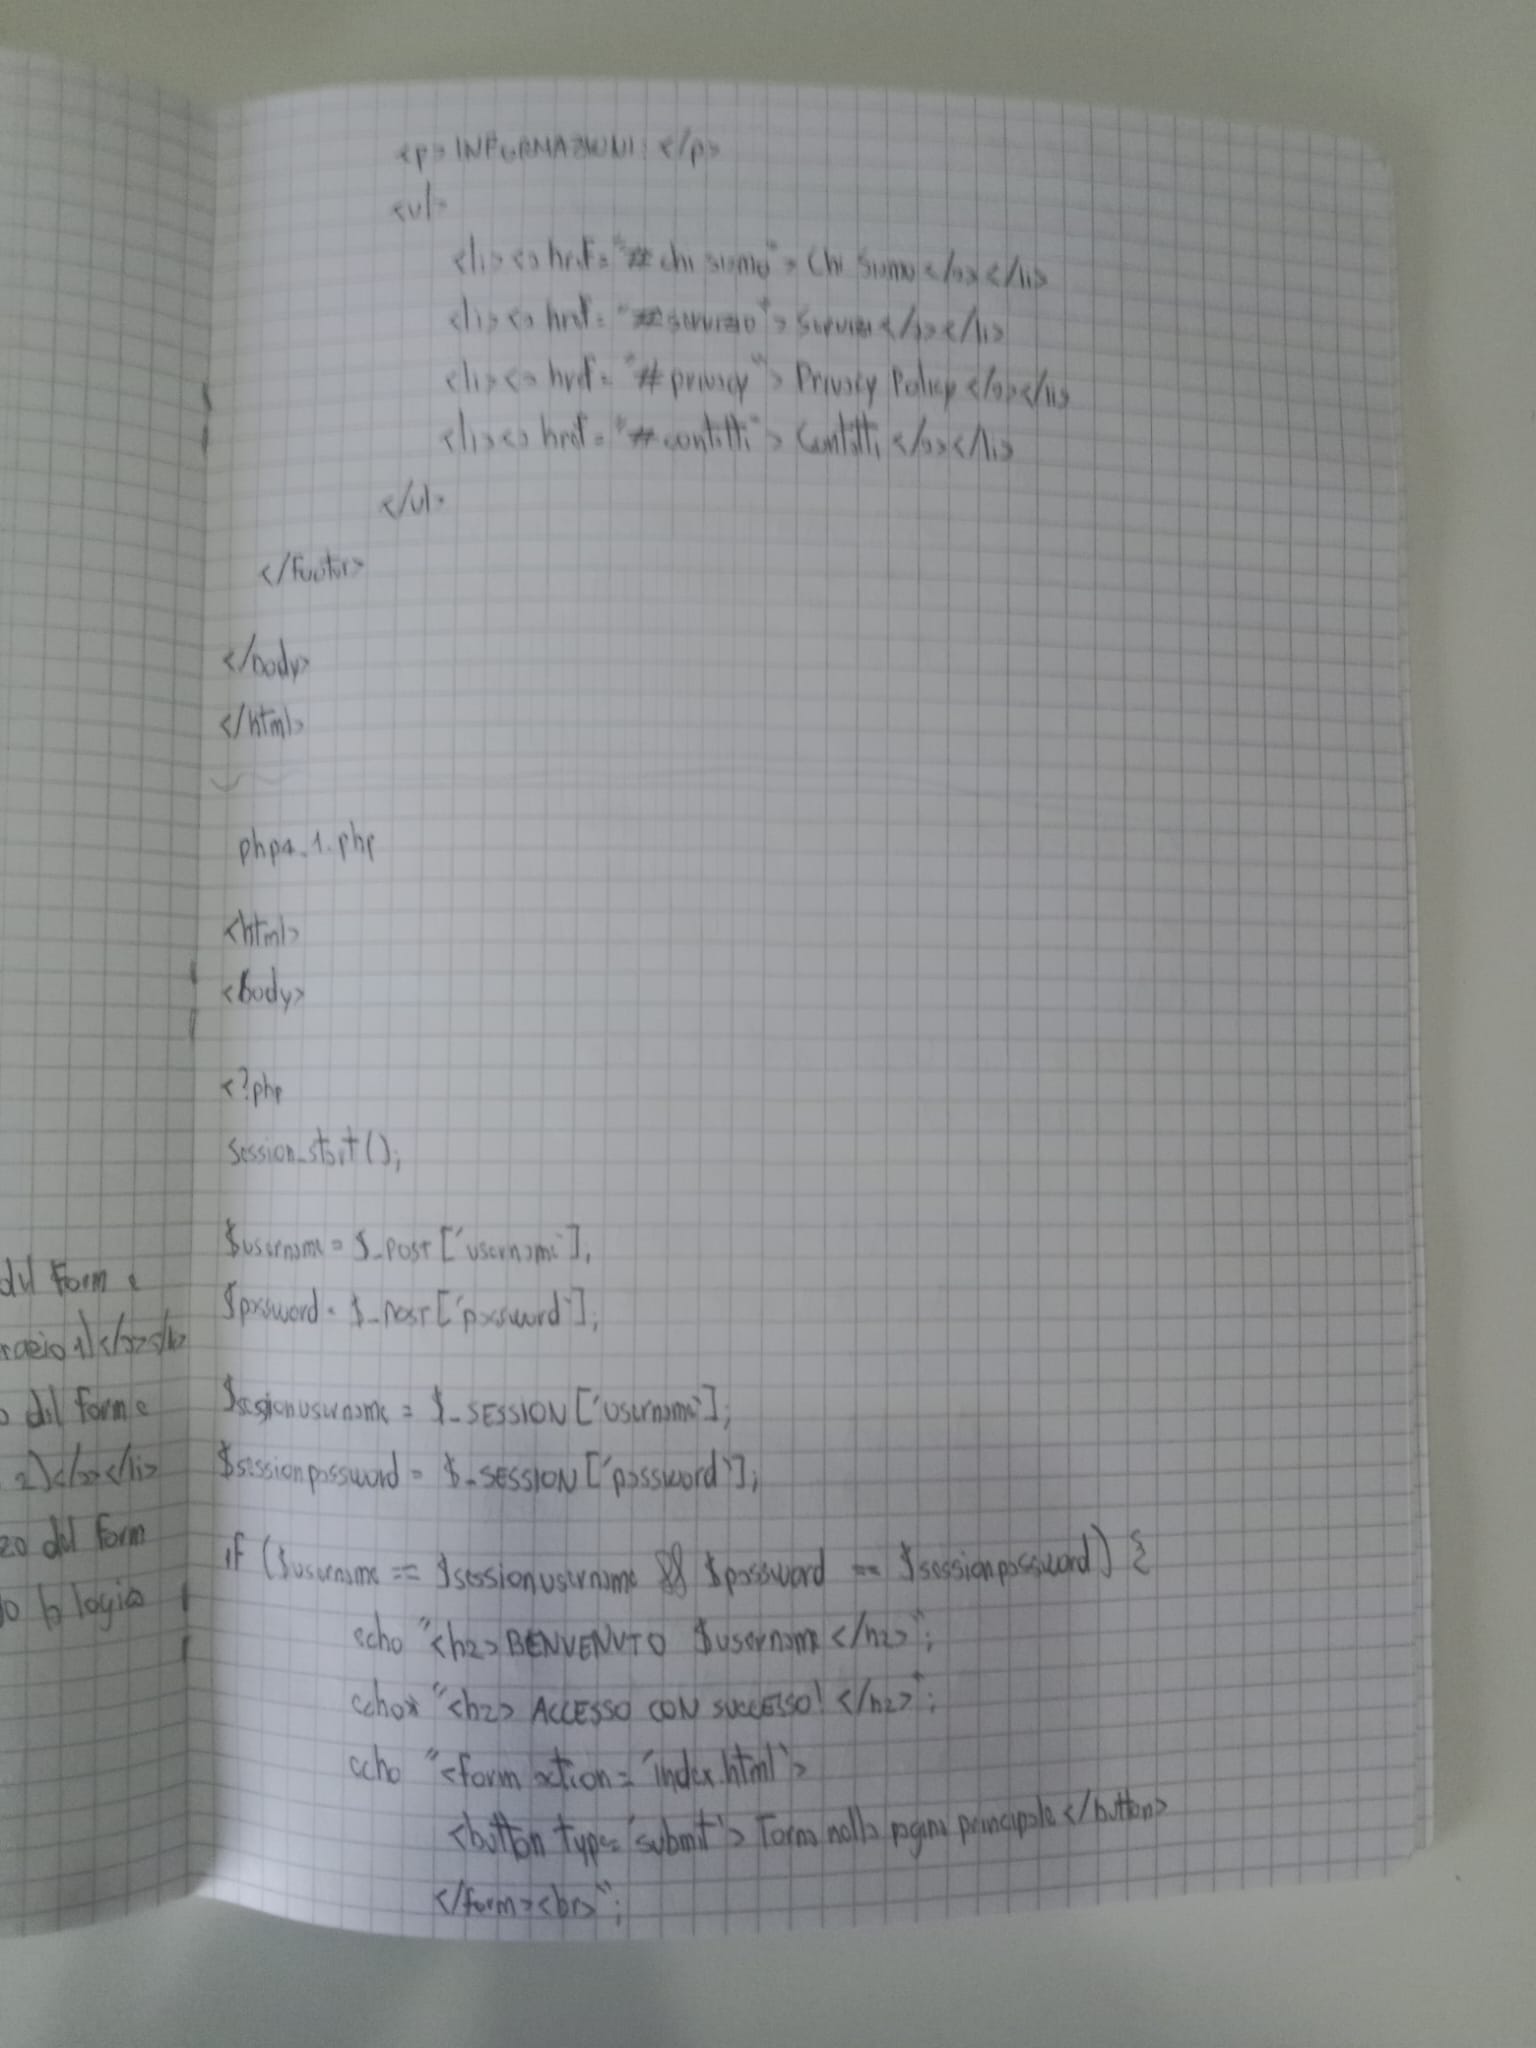 <p> INFORMAZIONI: </p>
<ul>
<li><a href="#chi siamo"> Chi Siamo </a></li>
<li><a href="#servizio"> Servizi </a></li>
<li><a href="#privacy"> Privacy Policy </a></li>
<li><a href="#contatti"> Contatti </a></li>
</ul>
</footer>
</body>
</html>
php4_1.php
<html>
<body>
<?php
session_start();
$username = $_POST['username'];
$password = $_POST['password'];
$sessionusername = $_SESSION['username'];
$sessionpassword = $_SESSION['password'];
if ($username == $sessionusername && $password == $sessionpassword) {
echo "<h2> BENVENUTO $username </h2>";
echo "<h2> ACCESSO CON SUCCESSO! </h2>";
echo "<form action = 'index.html'>
<button type='submit'> Torna nella pagina principale </button>
</form><br>";
del form e
1)</a></li>
del form e
2)</a></li>
del form
la logica